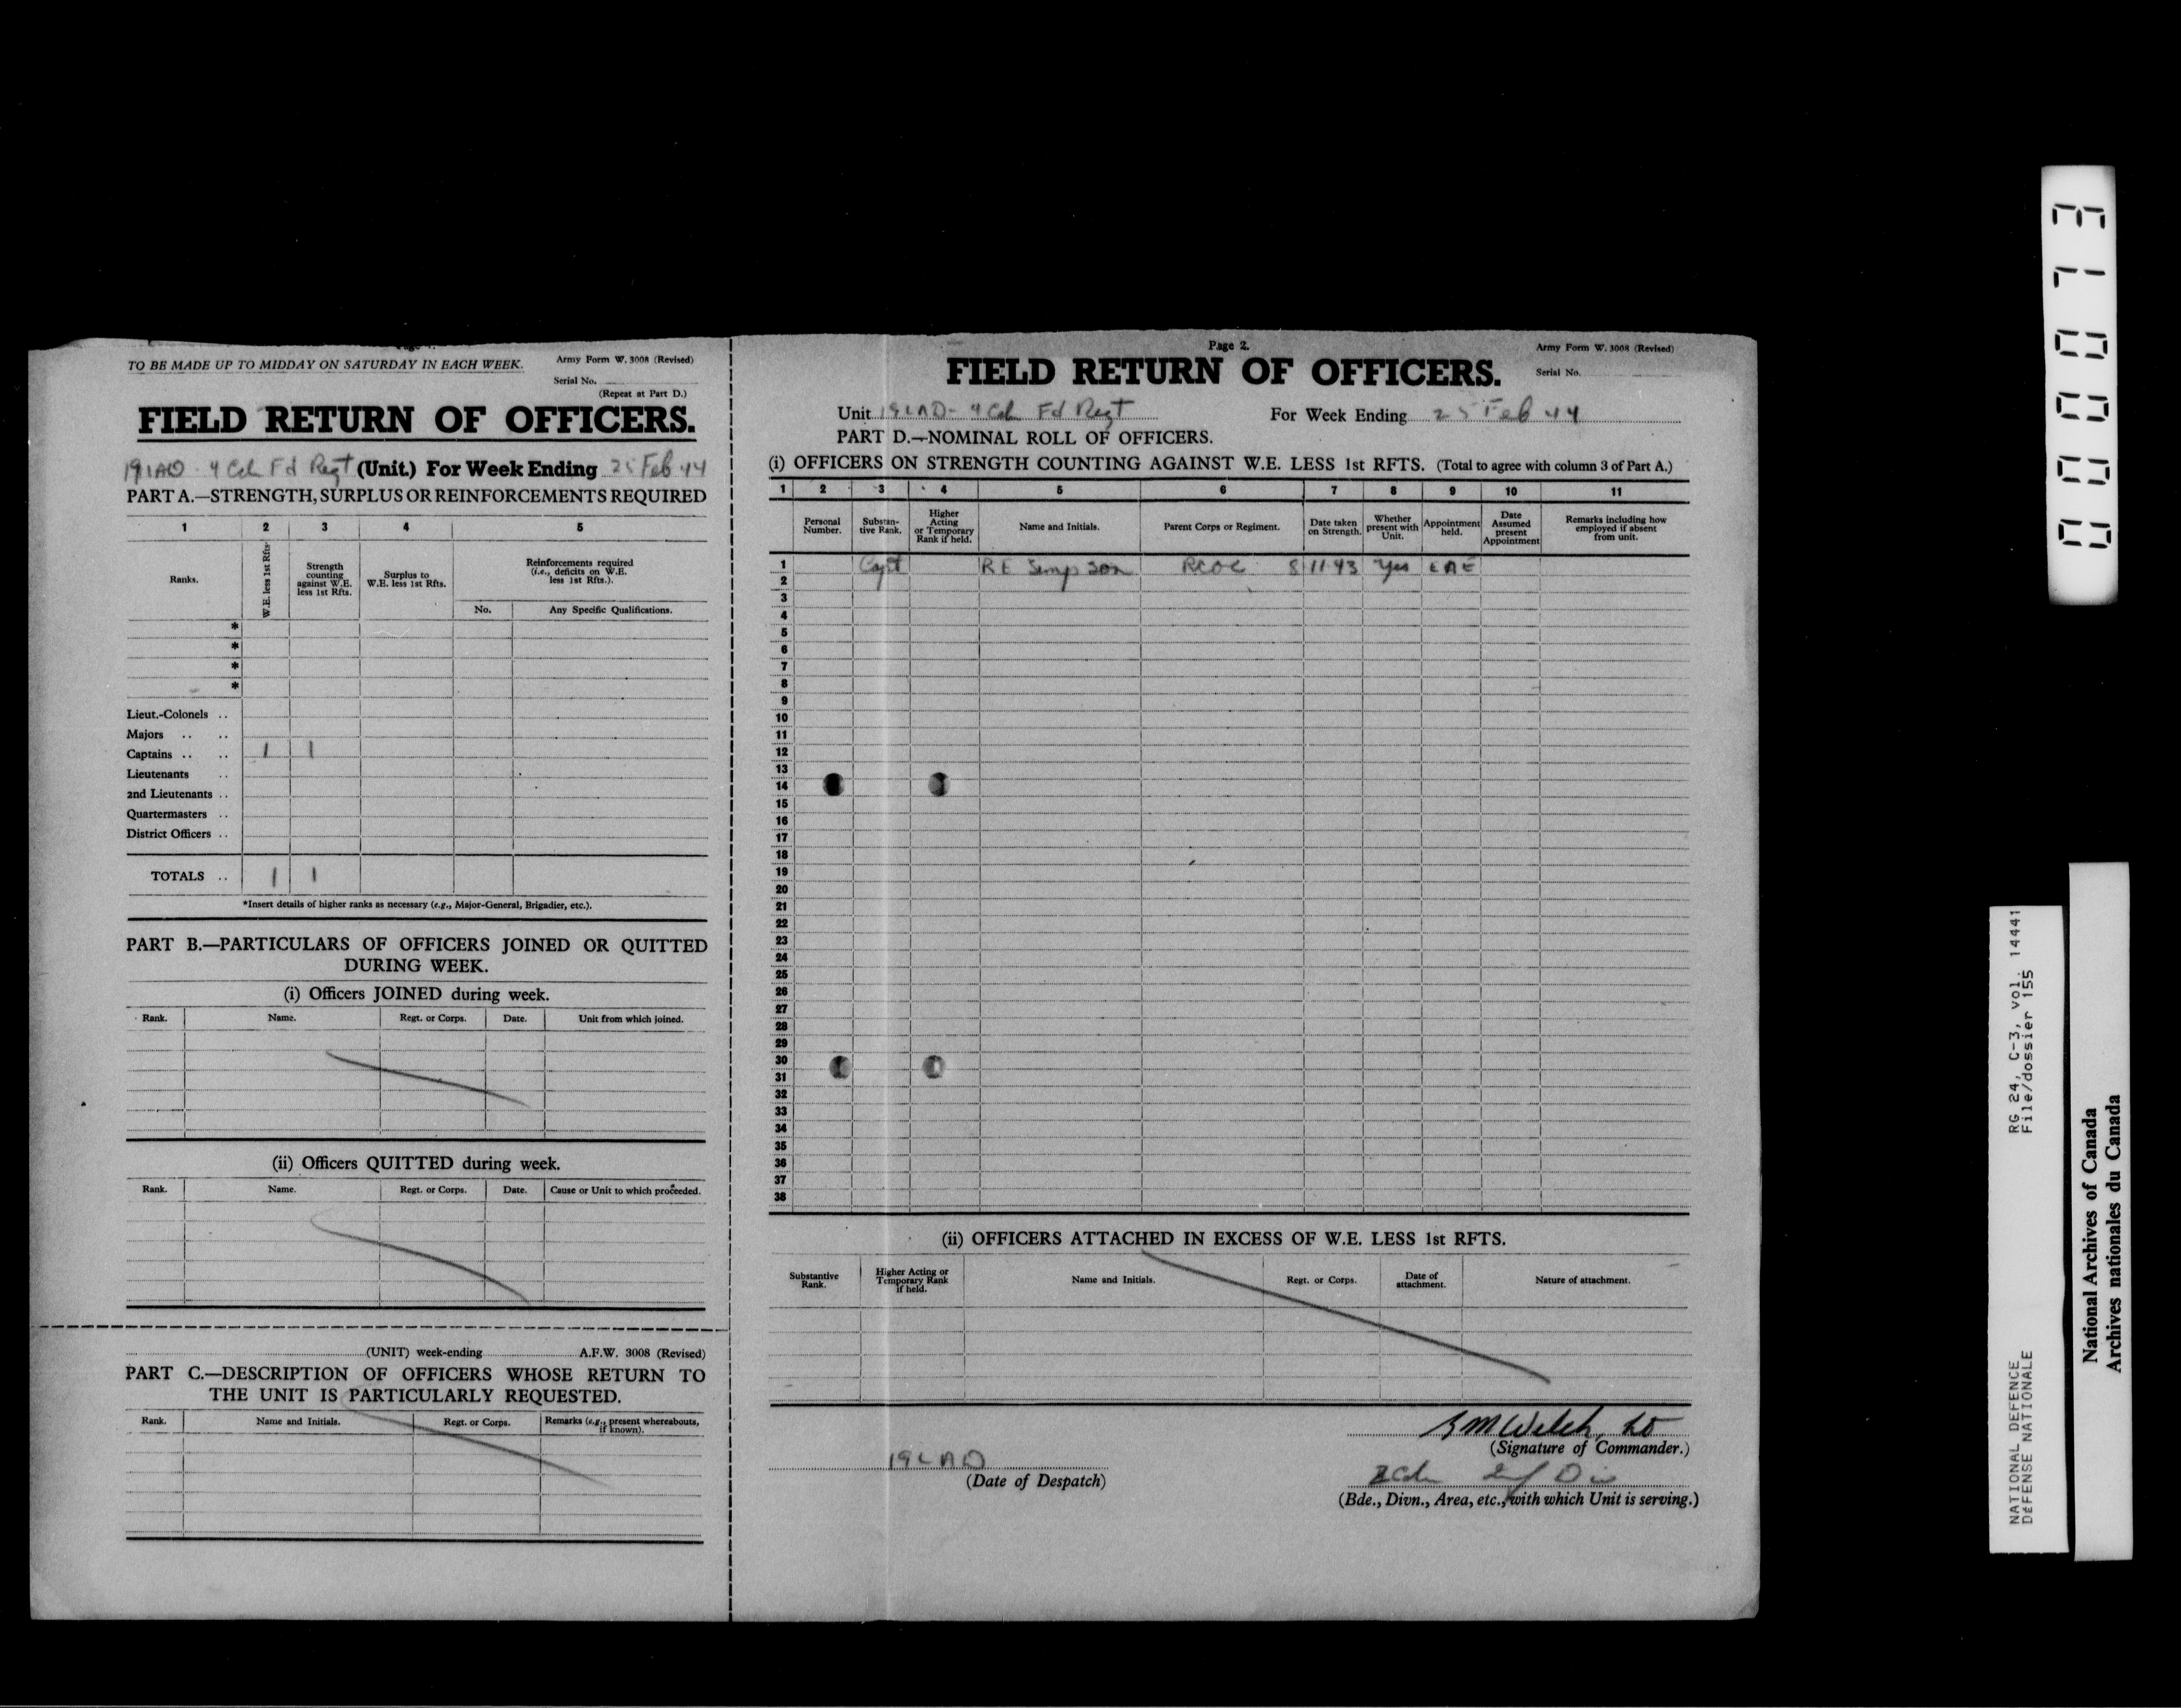 Page 1.
TO BE MADE UP TO MIDDAY ON SATURDAY IN EACH WEEK.
Army Form W. 3008 (Revised)
Serial No.
(Repeat at Part D.)
FIELD RETURN OF OFFICERS.
19 LAD - 4 Cdn Fd Regt (Unit.) For Week Ending 25 Feb 44
PART A.—STRENGTH, SURPLUS OR REINFORCEMENTS REQUIRED
1 2 3 4 5
Ranks.
W.E. less 1st Rfts.
Strength counting against W.E. less 1st Rfts.
Surplus to W.E. less 1st Rfts.
Reinforcements required (i.e., deficits on W.E. less 1st Rfts.).
No. Any Specific Qualifications.
*
*
*
*
Lieut.-Colonels ..
Majors .. ..
Captains .. .. 1 1
Lieutenants ..
2nd Lieutenants ..
Quartermasters ..
District Officers ..
TOTALS .. 1 1
*Insert details of higher ranks as necessary (e.g., Major-General, Brigadier, etc.).
PART B.—PARTICULARS OF OFFICERS JOINED OR QUITTED
DURING WEEK.
(i) Officers JOINED during week.
Rank. Name. Regt. or Corps. Date. Unit from which joined.
(ii) Officers QUITTED during week.
Rank. Name. Regt. or Corps. Date. Cause or Unit to which proceeded.
(UNIT) week-ending A.F.W. 3008 (Revised)
PART C.—DESCRIPTION OF OFFICERS WHOSE RETURN TO
THE UNIT IS PARTICULARLY REQUESTED.
Rank. Name and Initials. Regt. or Corps. Remarks (e.g., present whereabouts, if known).
Page 2.
Army Form W. 3008 (Revised)
FIELD RETURN OF OFFICERS.
Serial No.
Unit 19 LAD - 4 Cdn Fd Regt For Week Ending 25 Feb 44
PART D.—NOMINAL ROLL OF OFFICERS.
(i) OFFICERS ON STRENGTH COUNTING AGAINST W.E. LESS 1st RFTS. (Total to agree with column 3 of Part A.)
1 2 3 4 5 6 7 8 9 10 11
Personal Number.
Substantive Rank.
Higher Acting or Temporary Rank if held.
Name and Initials.
Parent Corps or Regiment.
Date taken on Strength.
Whether present with Unit.
Appointment held.
Date Assumed present Appointment
Remarks including how employed if absent from unit.
1 Capt R E Simpson RCOC 8 11 43 Yes EME
2
3
4
5
6
7
8
9
10
11
12
13
14
15
16
17
18
19
20
21
22
23
24
25
26
27
28
29
30
31
32
33
34
35
36
37
38
(ii) OFFICERS ATTACHED IN EXCESS OF W.E. LESS 1st RFTS.
Substantive Rank.
Higher Acting or Temporary Rank if held.
Name and Initials.
Regt. or Corps.
Date of attachment.
Nature of attachment.
Welch, Lt
(Signature of Commander.)
19 LAD
(Date of Despatch)
2 Cdn Inf Div
(Bde., Divn., Area, etc., with which Unit is serving.)
RG 24, C-3, vol. 14441
File/dossier 155
NATIONAL DEFENCE
DÉFENSE NATIONALE
National Archives of Canada
Archives nationales du Canada